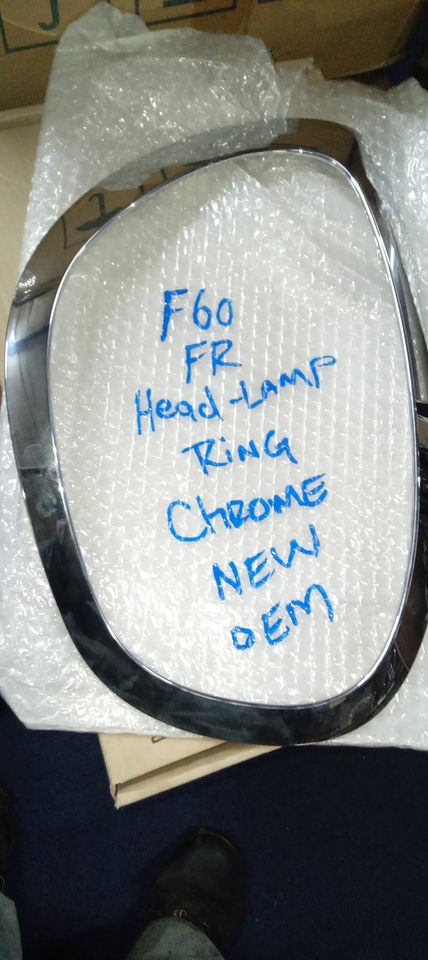 F60
FR
Head-Lamp
RiNG
CHROME
NEW
OEM